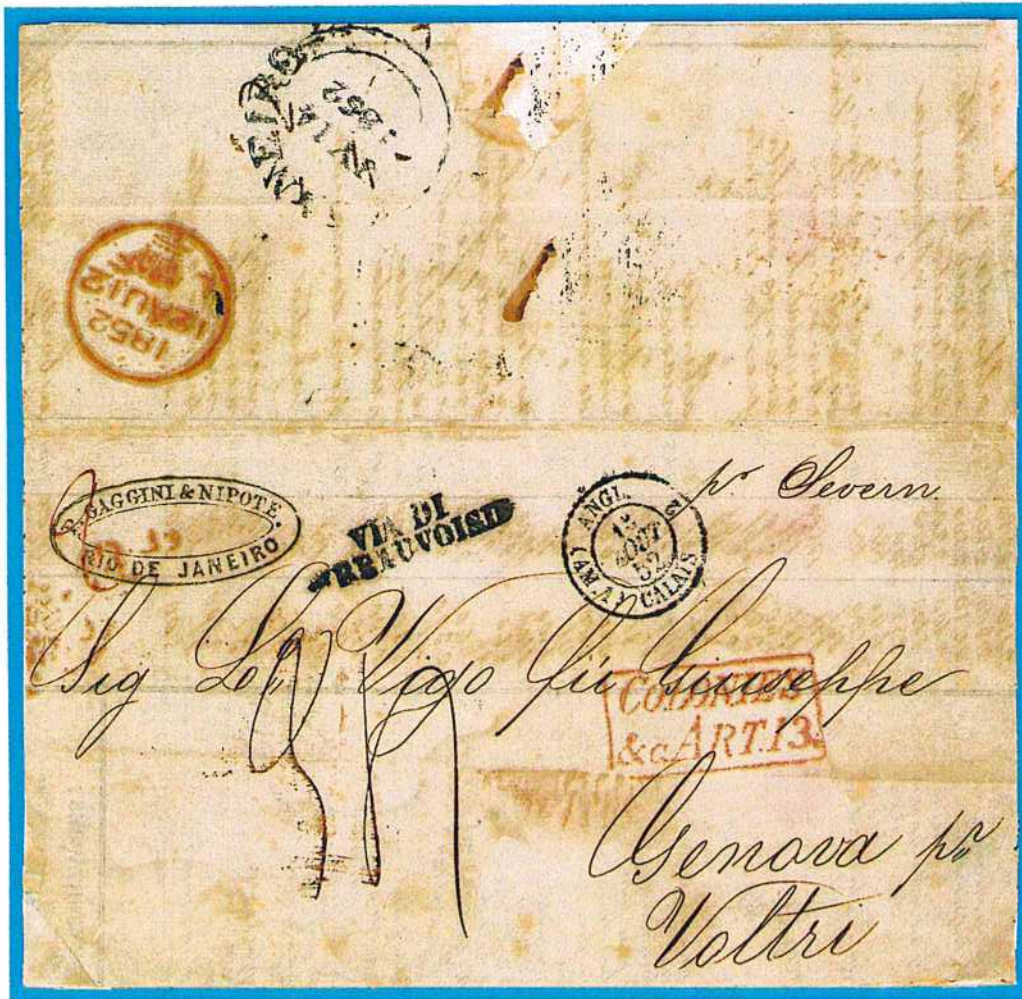 NEIRO
1852
1852
12 AU 12
P. GAGGINI & NIPOTE.
RIO DE JANEIRO
VIA DI
BEAUVOISIN
ANGL.
AOUT
52
CALAIS
pr Severn
Sig Vigo fu Giuseppe
COLONIES
&c. ART. 13.
Genova pr
Voltri